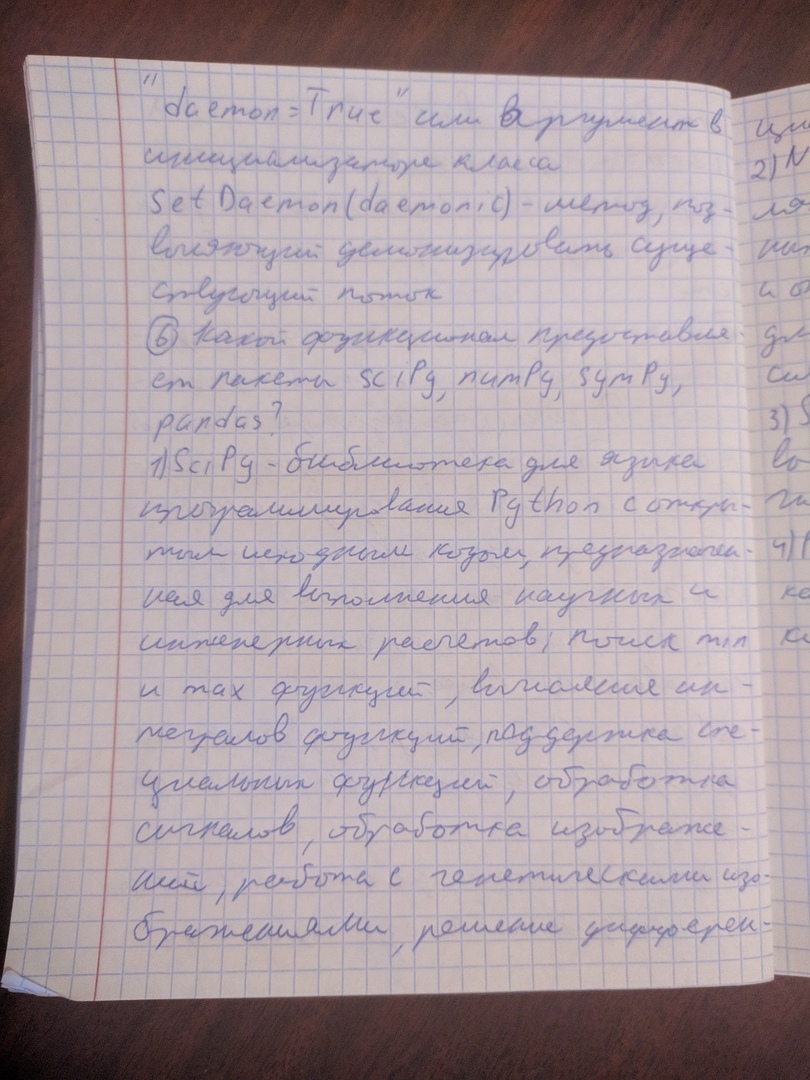 "daemon=True" или в аргумент в
инициализаторе класса
SetDaemon(daemonic) - метод, поз-
воляющий демонизировать суще-
ствующий поток
⑥ Какой функционал предоставля-
ет пакеты SciPy, numPy, SymPy,
pandas?
1) SciPy - библиотека для языка
программирования Python с откры-
тым исходным кодом, предназначен-
ная для выполнения научных и
инженерных расчетов; поиск min
и max функций, вычисление ин-
тегралов функций, поддержка спе-
циальных функций, обработка
сигналов, обработка изображе-
ний, работа с генетическими изо-
бражениями, решение дифферен-
2) N
и
3) S
4) P